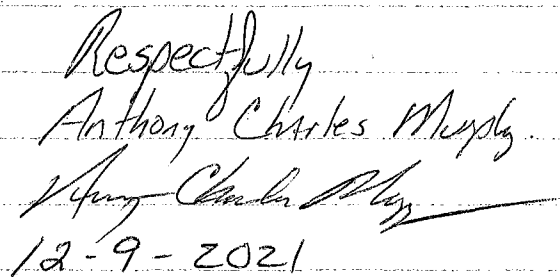 Respectfully
Anthony Charles Murphy.
Anthony Charles Murphy
12-9-2021